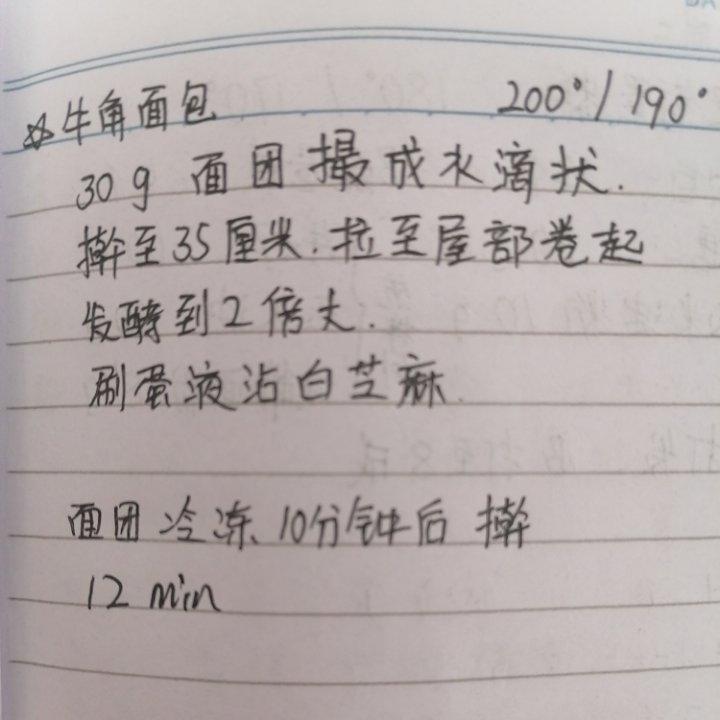 ☆牛角面包 200°/190°
30g 面团撮成水滴状.
擀至35厘米.拉至屋部卷起
发酵到2倍大.
刷蛋液沾白芝麻.
面团冷冻10分钟后擀
12 min